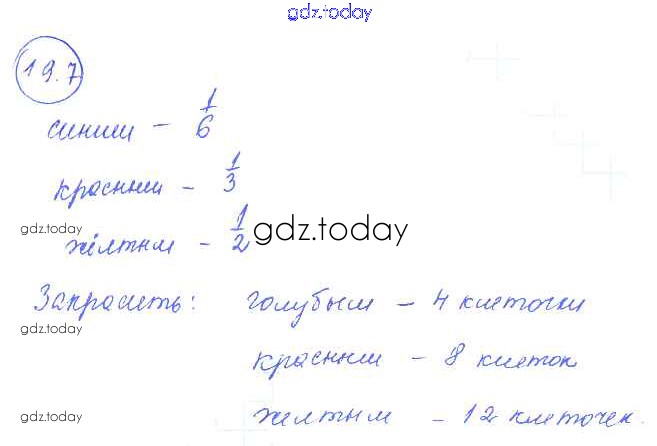 gdz.today
19.7
синим - 1/6
красным - 1/3
gdz.today
жёлтым - 1/2 gdz.today
Закрасить: голубым - 4 клеточки
gdz.today
красным - 8 клеток
gdz.today
желтым - 12 клеточек.